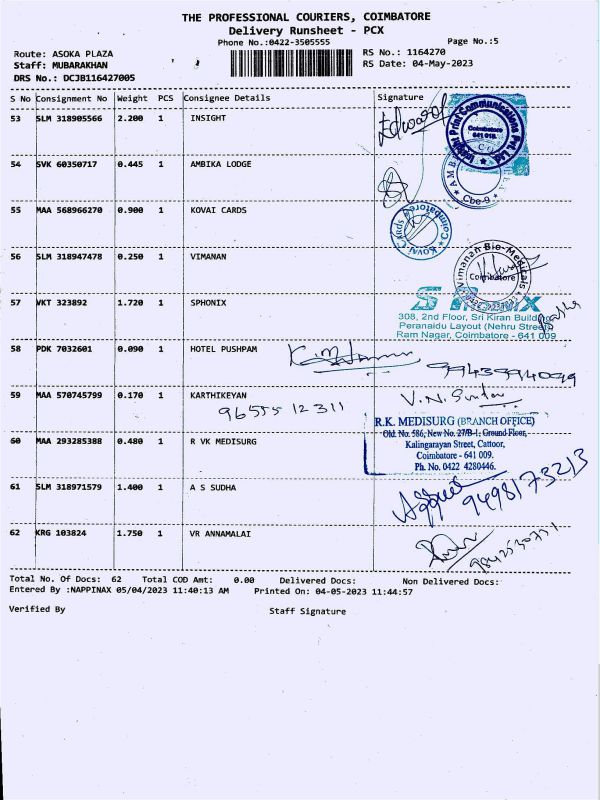 THE PROFESSIONAL COURIERS, COIMBATORE
Delivery Runsheet - PCX
Phone No.:0422-3505555
Page No.:5
Route: ASOKA PLAZA
RS No.: 1164270
Staff: MUBARAKHAN
RS Date: 04-May-2023
DRS No.: DCJB116427005
S No Consignment No Weight PCS Consignee Details Signature
53 SLM 318905566 2.200 1 INSIGHT
Edward
Insight Print Communications Pvt. Ltd.
Coimbatore
641 018.
54 SVK 60350717 0.445 1 AMBIKA LODGE
Cbe-9
55 MAA 568966270 0.900 1 KOVAI CARDS
Coimbatore
56 SLM 318947478 0.250 1 VIMANAN
Vimanan Bio-Medicals
Coimbatore
57 VKT 323892 1.720 1 SPHONIX
308, 2nd Floor, Sri Kiran Building
Peranaidu Layout (Nehru Street)
Ram Nagar, Coimbatore - 641 009
58 PDK 7032601 0.090 1 HOTEL PUSHPAM
59 MAA 570745799 0.170 1 KARTHIKEYAN
96555 12311
60 MAA 293285388 0.480 1 R VK MEDISURG
R.K. MEDISURG (BRANCH OFFICE)
Old. No. 586, New No. 27/B-1, Ground Floor,
Kalingarayan Street, Cattoor,
Coimbatore - 641 009.
Ph. No. 0422 4280446.
61 SLM 318971579 1.400 1 A S SUDHA
9498173213
62 KRG 103824 1.750 1 VR ANNAMALAI
Total No. Of Docs: 62 Total COD Amt: 0.00 Delivered Docs: Non Delivered Docs:
Entered By :NAPPINAX 05/04/2023 11:40:13 AM Printed On: 04-05-2023 11:44:57
Verified By Staff Signature